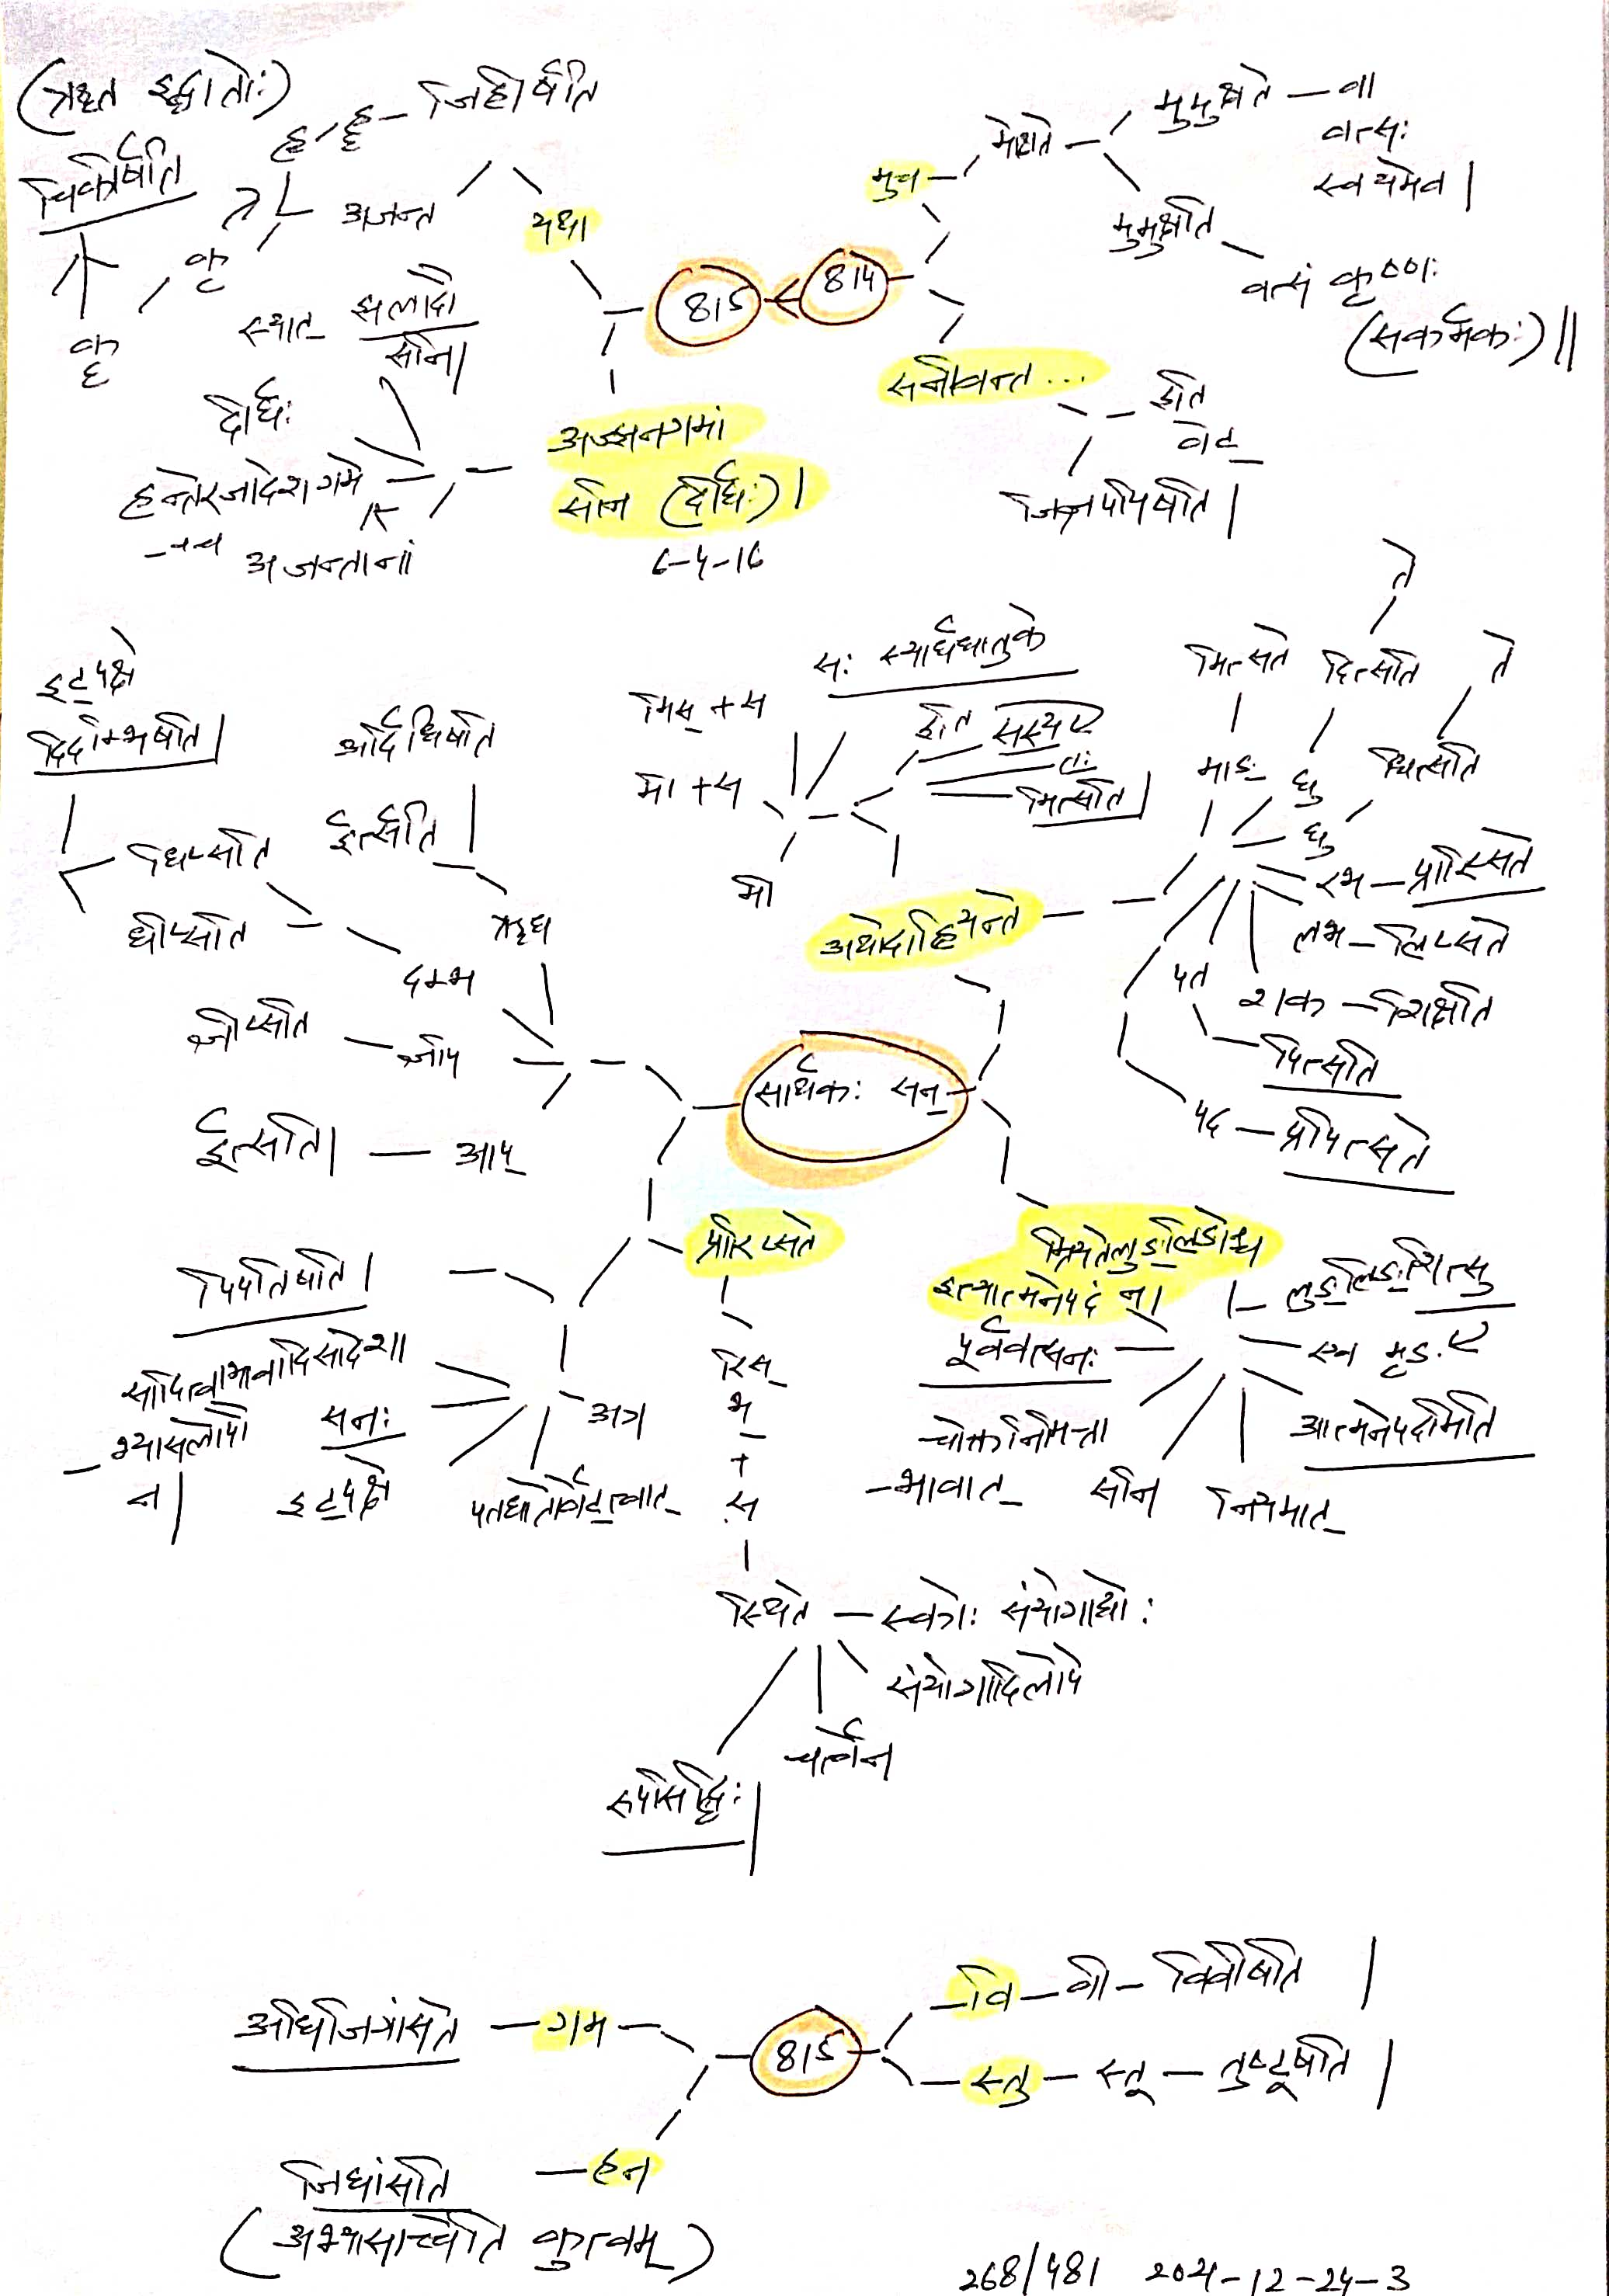 (ॠत इद्धातोः)
चिकीर्षति
कृ
कॄ
हृ
हॄ – जिहीर्षति
अजन्त
यथा
815
814
मुच
मोक्षते
मुमुक्षते – वा
वत्सः
स्वयमेव।
मुमुक्षति
वत्सं कृष्णः
(सकर्मकः)॥
सनीवन्त...
इति
वेट्
जिज्ञपयिषति।
अज्झनगमां
सनि (दीर्घः)।
6-4-16
स्यात् झलादौ
सनि।
दीर्घः
हन्तेरजादेशगमे
-श्च
अजन्तानां
इट्पक्षे
दिदम्भिषति।
धिप्सति
धीप्सति
दम्भ
अर्दिधिषति
ईर्त्सति
ऋध
ज्ञीप्सति – ज्ञपि
ईप्सति। – आप्
सः स्यार्धधातुके
मिस् + स
मा + स
मी
इति सस्य त्
तः
मित्सति।
मित्सते
माङ्
दित्सति
ते
घु
धित्सति
ते
घु
रभ – प्रारिप्सते
लभ – लिप्सते
शक – शिक्षति
पत
पित्सति
पद – प्रपित्सते
अथोदाह्रियन्ते
सार्थकः सन्
प्रारिप्सते
रिस्
भ्
+
स
स्थिते – स्कोः संयोगाद्योः
संयोगादिलोपे
चर्त्वेन
रूपसिद्धिः।
पिपतिषति।
सादित्वाभावादिसादेशा
भ्यासलोपौ
न।
सनः
इट्पक्षे
अत्र
पतधातोर्वेट्त्वात्
म्रियतेर्लुङ्लिङोश्च
इत्यात्मनेपदं न।
पूर्ववत्सनः
चोक्तनिमित्ता
-भावात्
सनि
नियमात्
लुङ्लिङ्शित्सु
एव मृङ्
आत्मनेपदमिति
अधिजिगांसते – गम
815
वि – वी – विवीषति।
स्तु – स्तू – तुष्टूषति।
जिघांसति – हन
(अभ्यासाच्चेति कुत्वम्)
268/481 2021-12-24-3